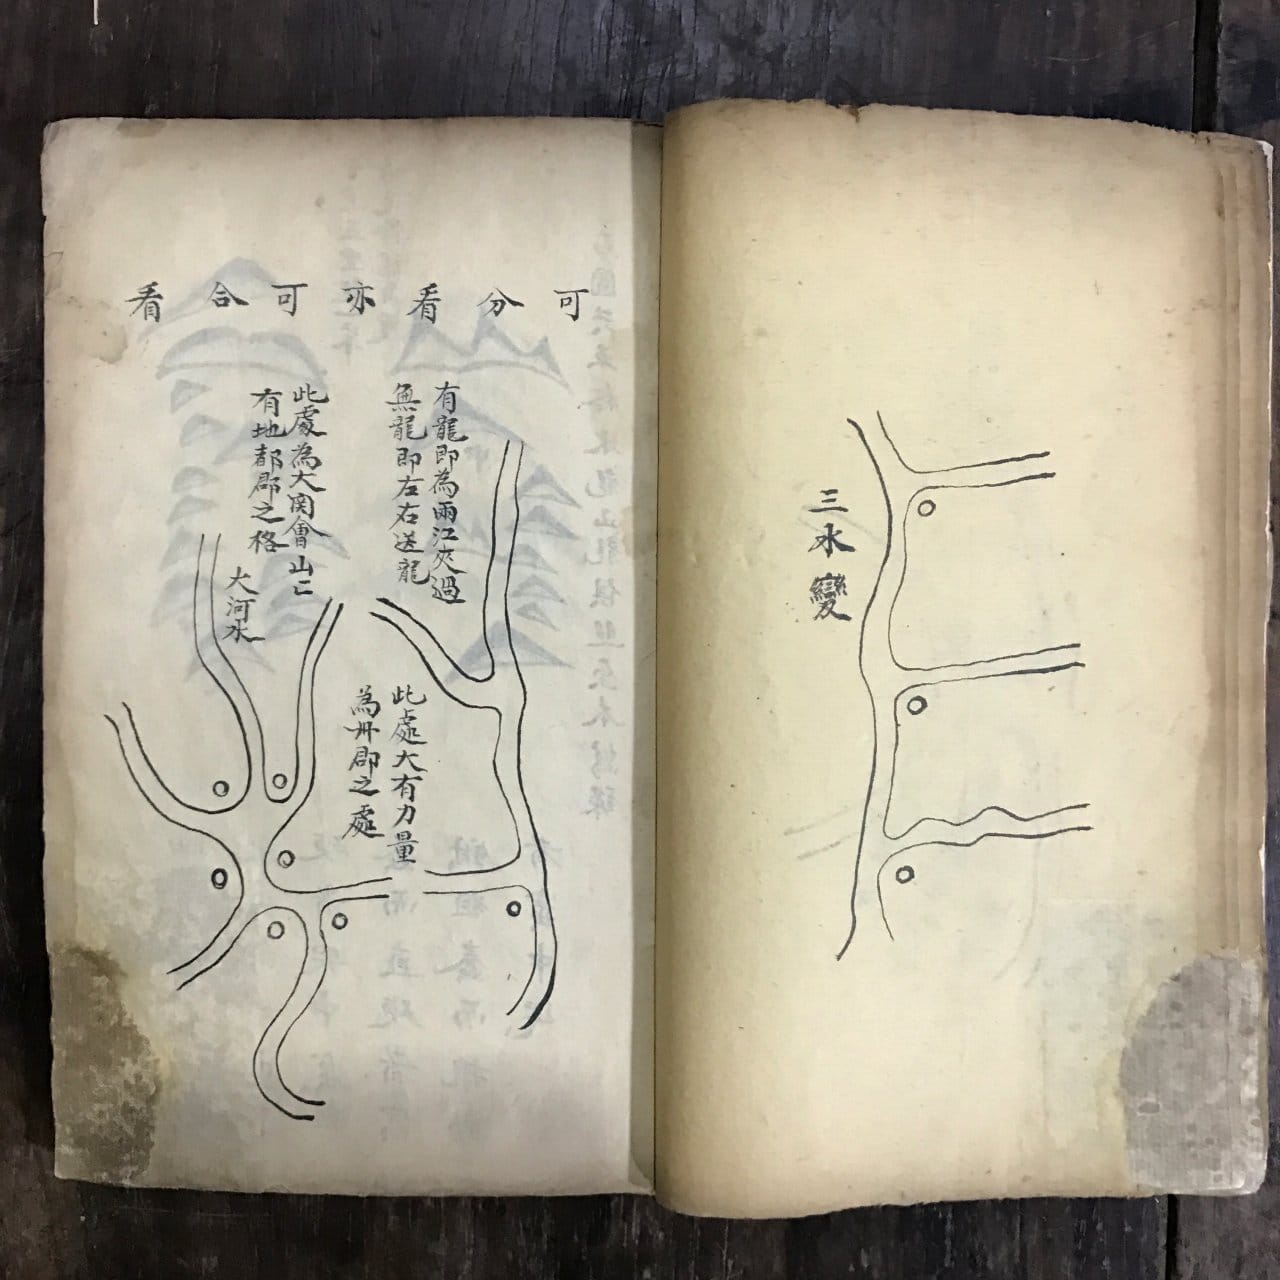 三水變
可分看亦可合看
有龍即為兩江夾過
無龍即左右送龍
此處為大関會山亡
有地都郡之格
大河水
此處大有力量
為州郡之處